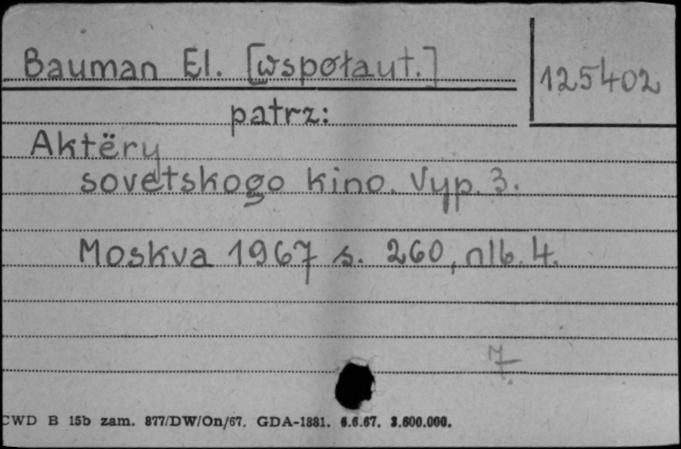 Bauman El. [współaut.]
125402
patrz:
Aktëry
sovetskogo kino. Vyp. 3.
Moskva 1967 s. 260, nlb. 4.
7.
CWD B 15b zam. 877/DW/On/67. GDA-1881. 6.6.67. 3.600.000.